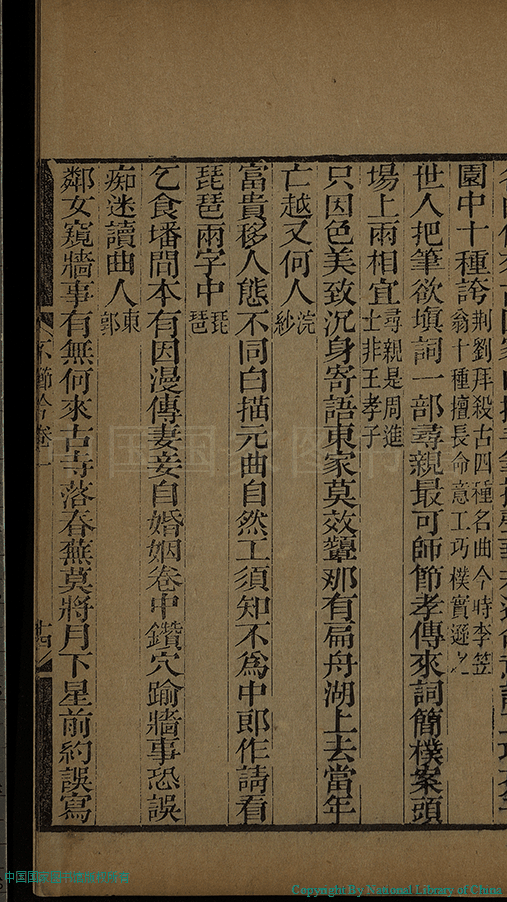 園中十種誇荆劉拜殺古四種名曲今時李笠
翁十種擅長命意工巧樸實遜之
世人把筆欲塡詞一部尋親最可師節孝傳來詞簡樸案頭
場上兩相宜尋親是周進
士非王孝子
只因色美致沉身寄語東家莫效顰那有扁舟湖上去當年
亡越又何人浣
紗
富貴移人態不同白描元曲自然工須知不爲中郎作請看
琵琶兩字中琵
琶
乞食墦間本有因漫傳妻妾自婚姻卷中鑽穴踰牆事恐誤
痴迷讀曲人東
郭
鄰女窺牆事有無何來古寺落春蕪莫將月下星前約誤寫
不節吟卷一
中国国家图书馆
Copyright By National Library of China